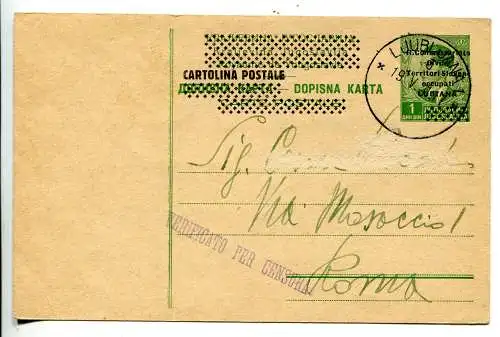 CARTOLINA POSTALE
ДОПИСНА КАРТА - DOPISNA KARTA
CARTE POSTALE
R. Commissariato
Civile
Territori Sloveni
occupati
LUBIANA
1
LJUBLJANA
19 V
Sig.
Via Masaccio 1
Roma
VERIFICATO PER CENSURA